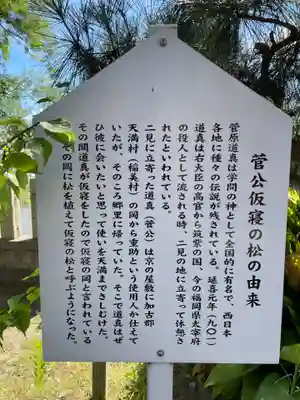 菅公仮寝の松の由来
菅原道真は学問の神として全国的に有名で、西日本
各地に種々の伝説が残されている。延喜元年（九〇一）
道真は右大臣の高官から筑紫の国、今の福岡県太宰府
の役人として流される時、二見の地に立寄って休憩さ
れたといわれている。
二見に立寄った道真（菅公）は京の屋敷に加古郡
天満村（稲美町）の岡から重助という使用人が仕えて
いたが、そのころ郷里に帰っていた。そこで道真はぜ
ひ彼に会いたいと思って使いを天満までさしむけた。
その間道真が仮寝をしたので仮寝の岡と言われている
その岡に松を植えて仮寝の松と呼ぶようになった。